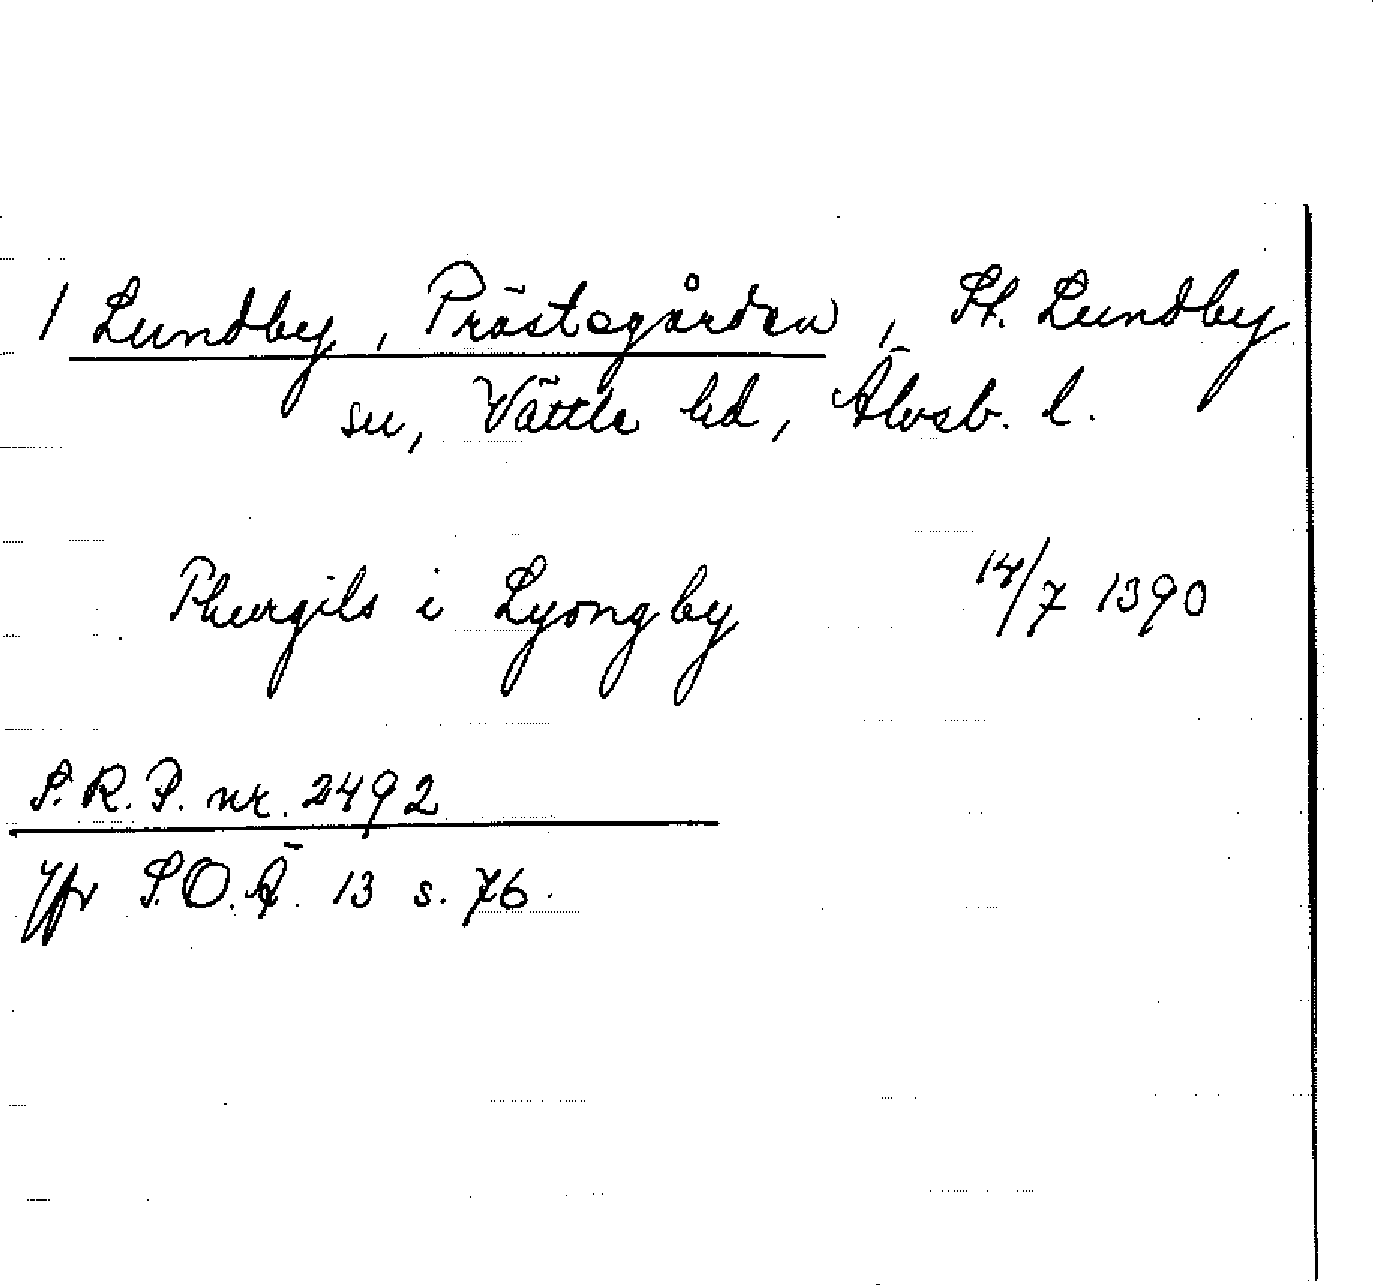 1 Lundby, Prästegården, St. Lundby
sn, Vättle hd, Älvsb. l.
Thurgils i Lyongby 14/7 1390
S.R.P. nr. 2492
Jfr S.O.Ä. 13 s. 76.